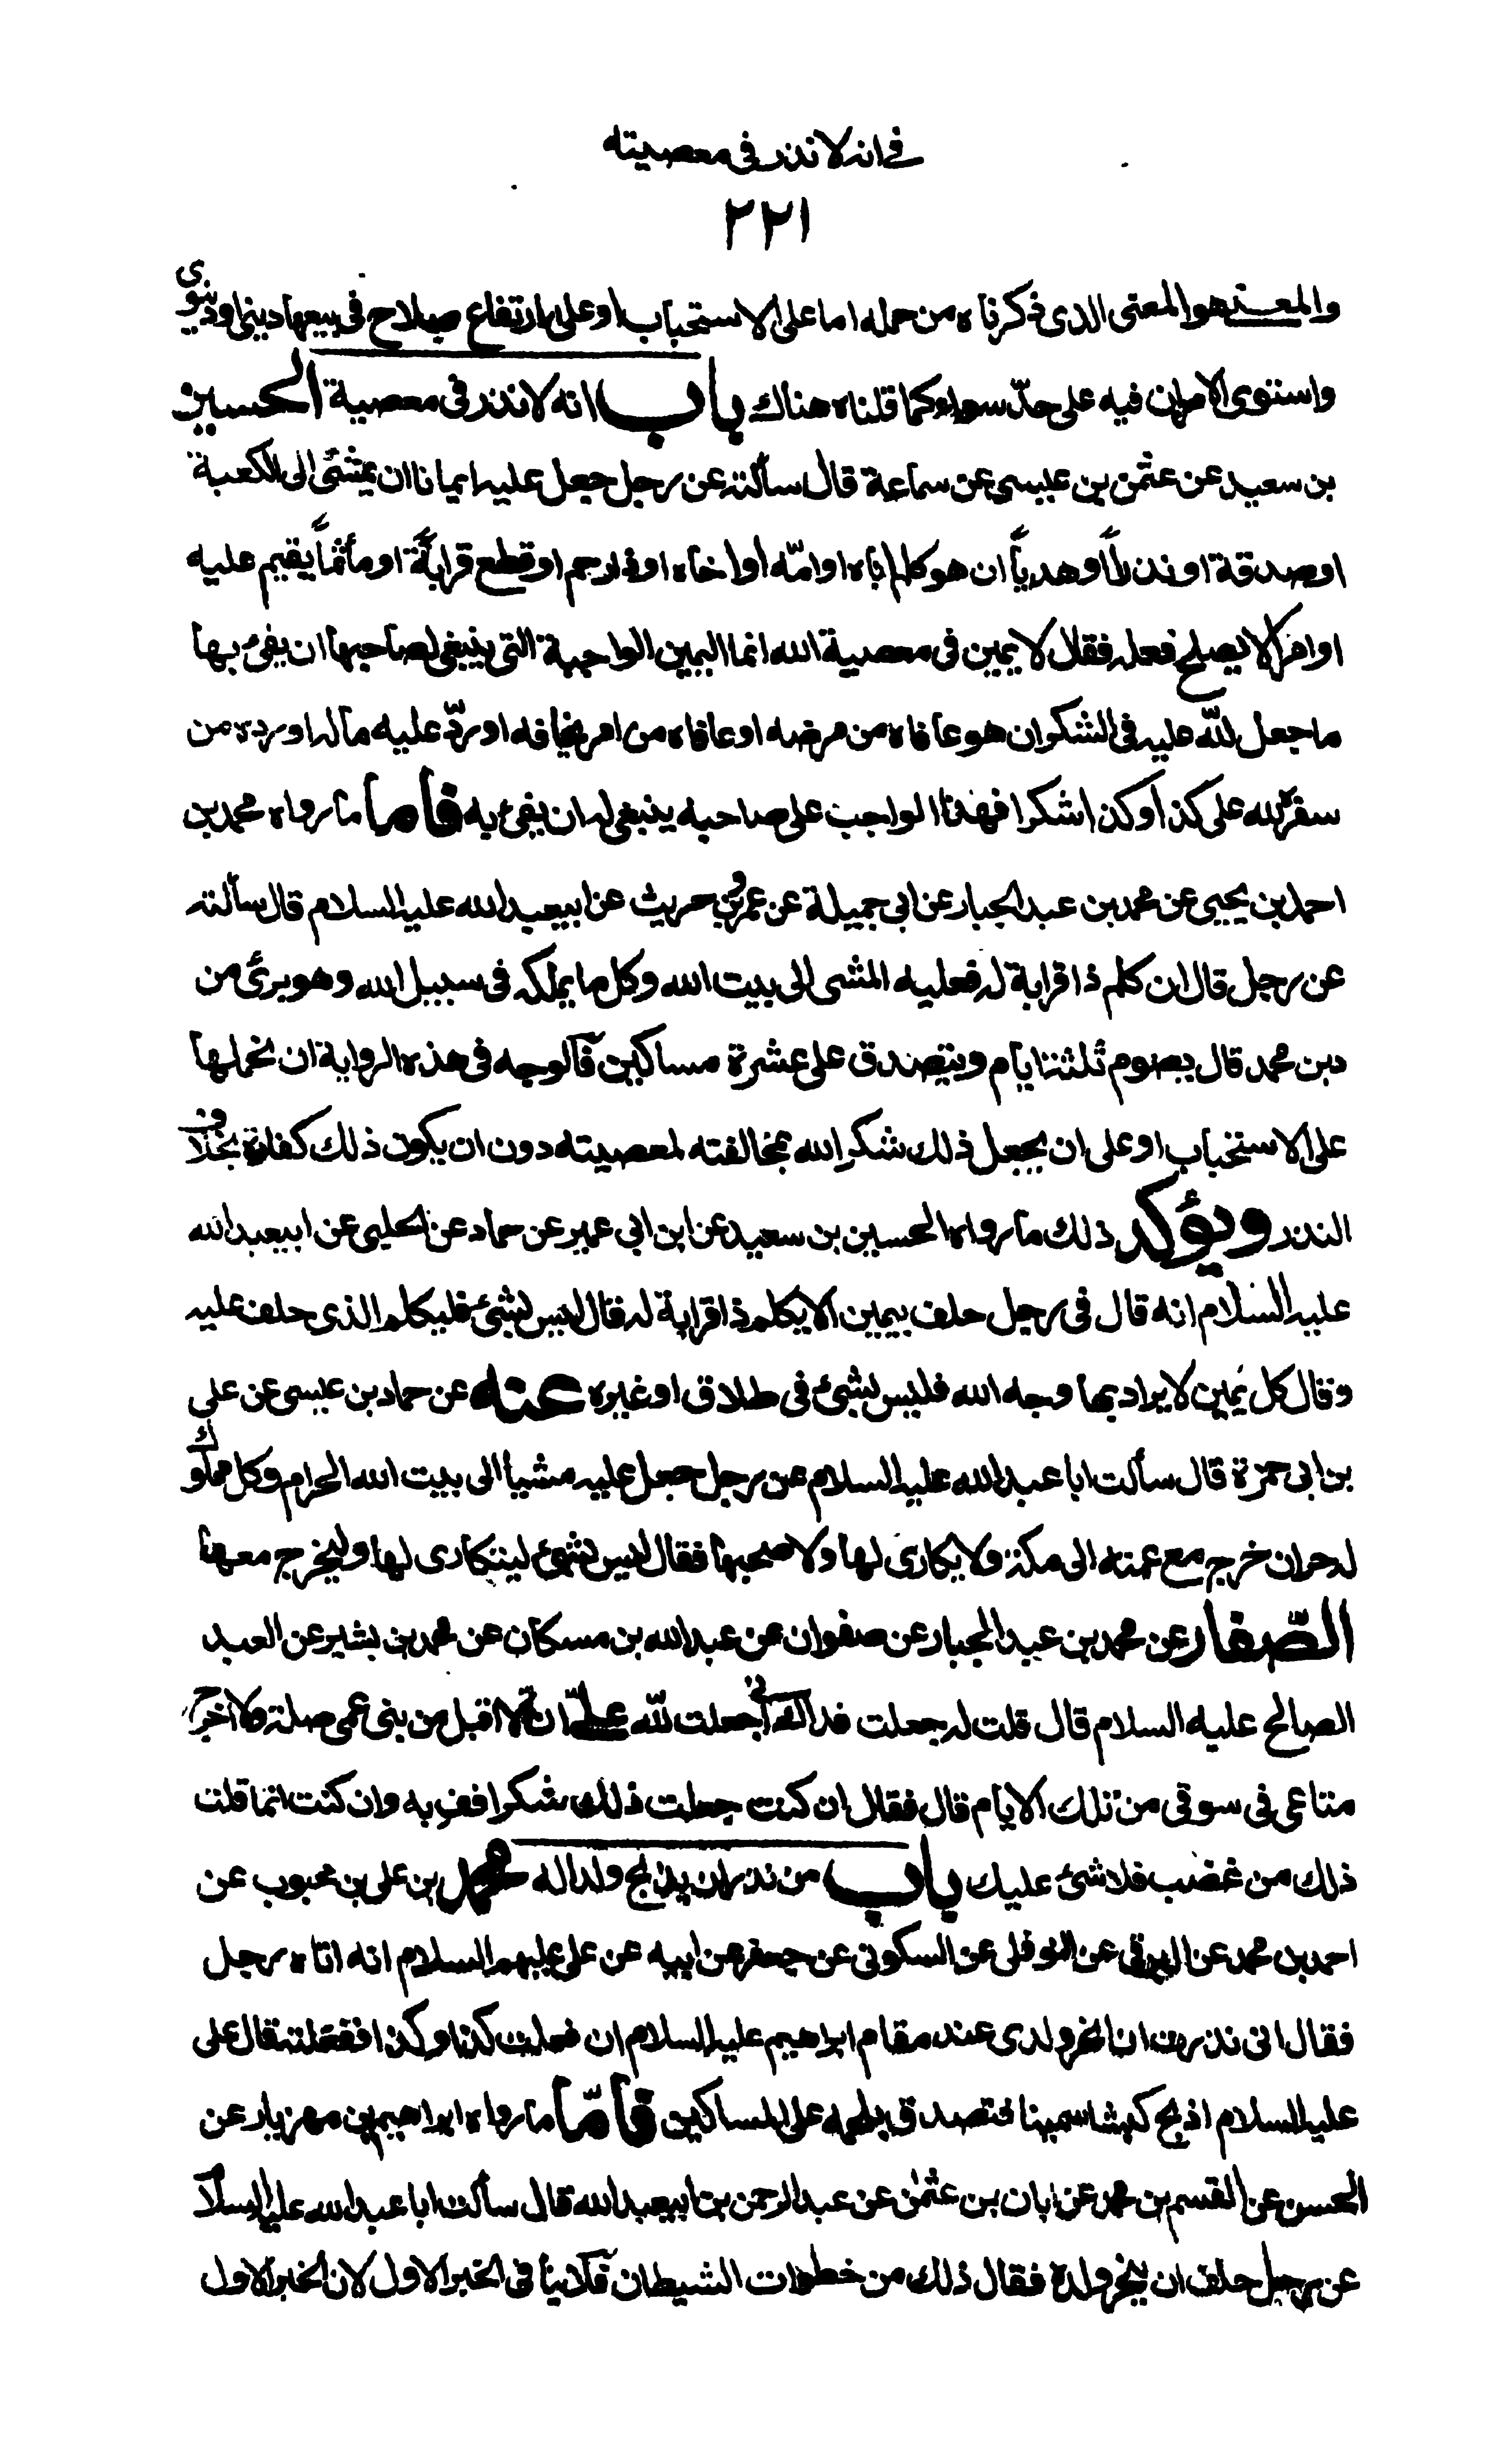 في انه لا نذر في معصيته
٢٢١
والمعنى هو المعنى الذى ذكرناه من حمله اما على الاستحباب او على ارتفاع صلاح فى بيعها دينى او دنيوى
واستوى الامران فيه على حدّ سواء كما قلناه هناك باب انه لا نذر فى معصية الحسين
بن سعيد عن عثمن بن عيسى عن سماعة قال سألته عن رجل جعل عليه ايمانا ان يمشى الى الكعبة
او صدقة او نذراً او هدياً ان هو كلم اباه او امّه او اخاه او ذا رحم او قطع قرابةً او مأثماً يقيم عليه
او امراً لا يصلح فعله فقال لا يمين فى معصية الله انما اليمين الواجبة التى ينبغى لصاحبها ان يفى بها
ما جعل للّه عليه فى الشكر ان هو عافاه من مرضه او عافاه من امر يخافه او ردّ عليه ماله او رده من
سفر فقال لله على كذا وكذا شكرا فهذا الواجب على صاحبه ينبغى له ان يفى به فاما ما رواه محمد بن
احمد بن يحيى عن محمد بن عبد الجبار عن ابى جميلة عن عمرو بن حريث عن ابيعبد الله عليه السلام قال سألته
عن رجل قال ان كلم ذا قرابة له فعليه المشى الى بيت الله وكل ما يملكه فى سبيل الله وهو برئ من
دين محمد قال يصوم ثلثة ايام ويتصدق على عشرة مساكين فالوجه فى هذه الرواية ان نحملها
على الاستحباب او على ان يجعل ذلك شكر الله بمخالفته لمعصيته دون ان يكون ذلك كفارة بخلاف
النذر ويؤكد ذلك ما رواه الحسين بن سعيد عن ابن ابى عمير عن حماد عن الحلبى عن ابيعبد الله
عليه السلام انه قال فى رجل حلف بيمين الا يكلم ذا قرابة له قال ليس بشئ فليكلم الذى حلف عليه
وقال كل يمين لا يراد بها وجه الله فليس بشئ فى طلاق او غيره عنه عن حماد بن عيسى عن على
بن ابى حمزة قال سألت ابا عبد الله عليه السلام عن رجل جعل عليه مشيا الى بيت الله الحرام وكل مملوك
له حر ان خرج مع عمته الى مكة ولا يكارى لها ولا صحبها فقال ليس بشئ ليتكارى لها وليخرج معها
الصّفار عن محمد بن عبد الجبار عن صفوان عن عبد الله بن مسكان عن محمد بن بشير عن العبد
الصالح عليه السلام قال قلت له جعلت فداك انى جعلت للّه علىّ ان لا اقبل من بنى عمى صلة ولا اخرج
متاعى فى سوقى من تلك الايام قال فقال ان كنت جعلت ذلك شكرا فف به وان كنت انما قلت
ذلك من غضب فلا شئ عليك باب من نذر ان يذبح ولدا له محمد بن على بن محبوب عن
احمد بن محمد عن البرقى عن النوفلى عن السكونى عن جعفر عن ابيه عن على عليهم السلام انه اتاه رجل
فقال انى نذرت ان انحر ولدى عند مقام ابراهيم عليه السلام ان فعلت كذا وكذا ففعلته قال على
عليه السلام اذبح كبشا سمينا فتصدق بلحمه على المساكين فامّا ما رواه ابراهيم بن مهزيار عن
الحسن عن القسم بن محمد عن ابان بن عثمن عن عبد الرحمن بن ابيعبد الله قال سألت ابا عبد الله عليه السلام
عن رجل حلف ان ينحر ولده فقال ذلك من خطوات الشيطان فلا ينافى الخبر الاول لان الخبر الاول